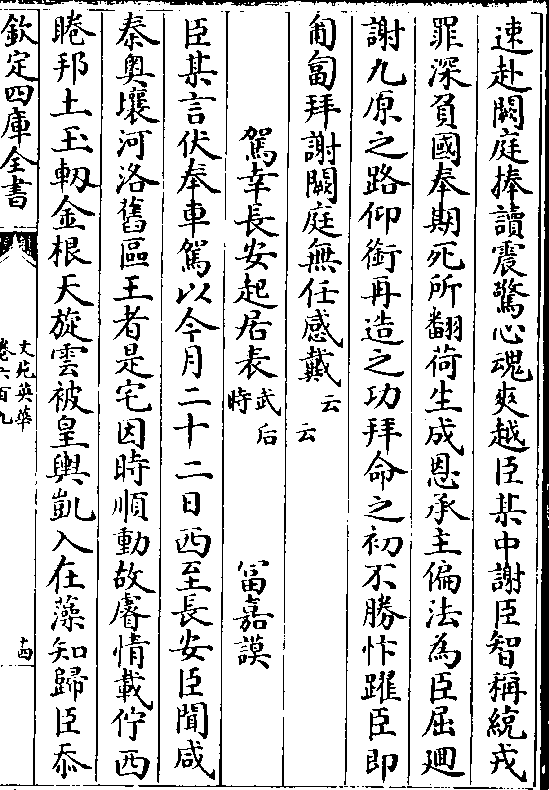 速赴闕庭捧讀震驚心魂爽越臣某中謝臣智稱統戎
罪深負國奉期死所翻荷生成恩承主偏法為臣屈廻
謝九原之路仰銜再造之功拜命之初不勝忭躍臣即
匍匐拜謝闕庭無任感戴云云
駕幸長安起居表武后時 富嘉謨
臣某言伏奉車駕以今月二十二日西至長安臣聞咸
秦奥壤河洛舊區王者是宅因時順動故睿情載佇西
睠邦土玉軔金根天旋雲被皇輿凱入在藻知歸臣忝
欽定四庫全書
文苑英華
卷六百九